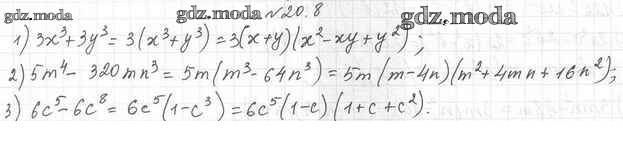 gdz.moda gdz.moda №20.8 gdz.moda
1) 3x³+3y³ = 3(x³+y³) = 3(x+y)(x²-xy+y²);
2) 5m⁴ - 320mn³ = 5m(m³-64n³) = 5m(m-4n)(m²+4mn+16n²);
3) 6c⁵-6c⁸ = 6c⁵(1-c³) = 6c⁵(1-c)(1+c+c²).